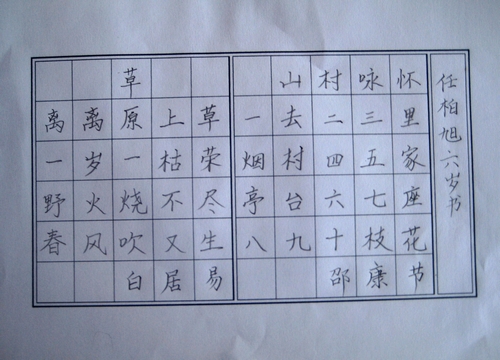 草
离离原上草
一岁一枯荣
野火烧不尽
春风吹又生
白居易
山村咏怀
一去二三里
烟村四五家
亭台六七座
八九十枝花
邵康节
任柏旭六岁书